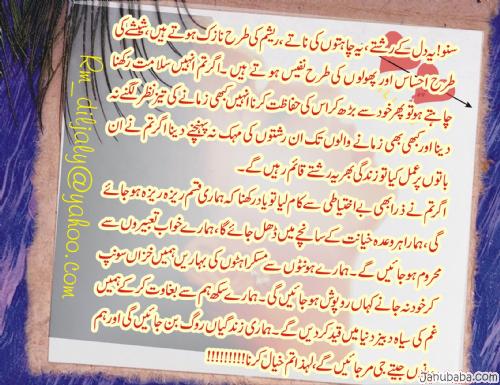 سنو! یہ دل کے رشتے، یہ چاہتوں کی ناتے، ریشم کی طرح نازک ہوتے ہیں، شیشے کی
طرح احساس اور پھولوں کی طرح نفیس ہوتے ہیں۔ اگر تم انہیں سلامت رکھنا
چاہتے ہو تو پھر خود سے بڑھ کر اس کی حفاظت کرنا انہیں کبھی زمانے کی تیز نظر لگنے نہ
دینا اور کبھی بھی زمانے والوں تک ان رشتوں کی مہک نہ پہنچنے دینا اگر تم نے ان
باتوں پر عمل کیا تو زندگی بھر یہ رشتے قائم رہیں گے۔
اگر تم نے ذرا بھی بے احتیاطی سے کام لیا تو یاد رکھنا کہ ہماری قسم ریزہ ریزہ ہو جائے
گی، ہمارا ہر وعدہ خیانت کے سانچے میں ڈھل جائے گا، ہمارے خواب تعبیروں سے
محروم ہو جائیں گے۔ ہمارے ہونٹوں سے مسکراہٹوں کی بہاریں ہمیں خزاں سونپ
کر خود نہ جانے کہاں روپوش ہو جائیں گی۔ ہمارے سکھ ہم سے بغاوت کر کے ہمیں
غم کی سیاہ دبیز دنیا میں قید کر دیں گے۔ ہماری زندگیاں روگ بن جائیں گی اور ہم
جیتے جی مر جائیں گے، لہذا تم خیال کرنا!!!!!!!!!!
Rm_diljaly@yahoo.com
Janubaba.com